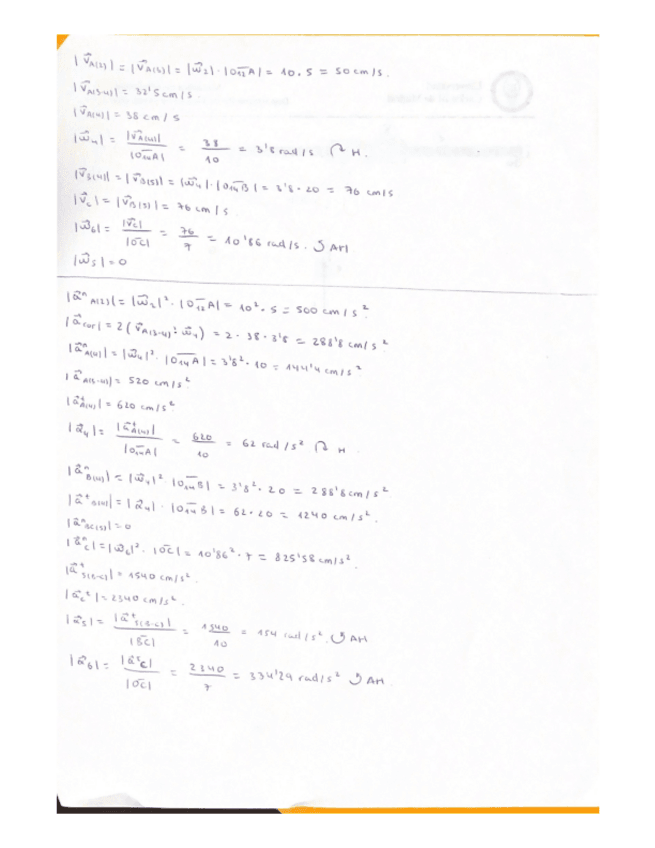 |v⃗A(2)| = |v⃗A(3)| = |ω⃗2| · |O12A| = 10 · 5 = 50 cm/s.
|v⃗A(3-4)| = 32'5 cm/s.
|v⃗A(4)| = 38 cm/s
|ω⃗4| = |v⃗A(4)| / |O14A| = 38 / 10 = 3'8 rad/s ↷ H.
|v⃗B(4)| = |v⃗B(5)| = |ω⃗4| · |O14B| = 3'8 · 20 = 76 cm/s
|v⃗c| = |v⃗B(5)| = 76 cm/s.
|ω⃗6| = |v⃗c| / |OC| = 76 / 7 = 10'86 rad/s. ↺ AH
|ω⃗5| = 0
|a⃗ⁿA(2)| = |ω⃗2|² · |O12A| = 10² · 5 = 500 cm/s².
|a⃗cor| = 2 (v⃗A(3-4) · ω⃗4) = 2 · 38 · 3'8 = 288'8 cm/s²
|a⃗ⁿA(4)| = |ω⃗4|² · |O14A| = 3'8² · 10 = 144'4 cm/s².
|a⃗A(3-4)| = 520 cm/s².
|a⃗ᵗA(4)| = 620 cm/s².
|α⃗4| = |a⃗ᵗA(4)| / |O14A| = 620 / 10 = 62 rad/s² ↷ H
|a⃗ⁿB(4)| = |ω⃗4|² · |O14B| = 3'8² · 20 = 288'8 cm/s²
|a⃗ᵗB(4)| = |α⃗4| · |O14B| = 62 · 20 = 1240 cm/s².
|a⃗ⁿBC(5)| = 0
|a⃗ⁿc| = |ω⃗6|² · |OC| = 10'86² · 7 = 825'58 cm/s².
|a⃗ᵗ5(B-C)| = 1540 cm/s².
|a⃗cᵗ| = 2340 cm/s².
|α⃗5| = |a⃗ᵗ5(B-C)| / |BC| = 1540 / 10 = 154 rad/s². ↺ AH
|α⃗6| = |a⃗ᵗc| / |OC| = 2340 / 7 = 334'29 rad/s² ↺ AH.